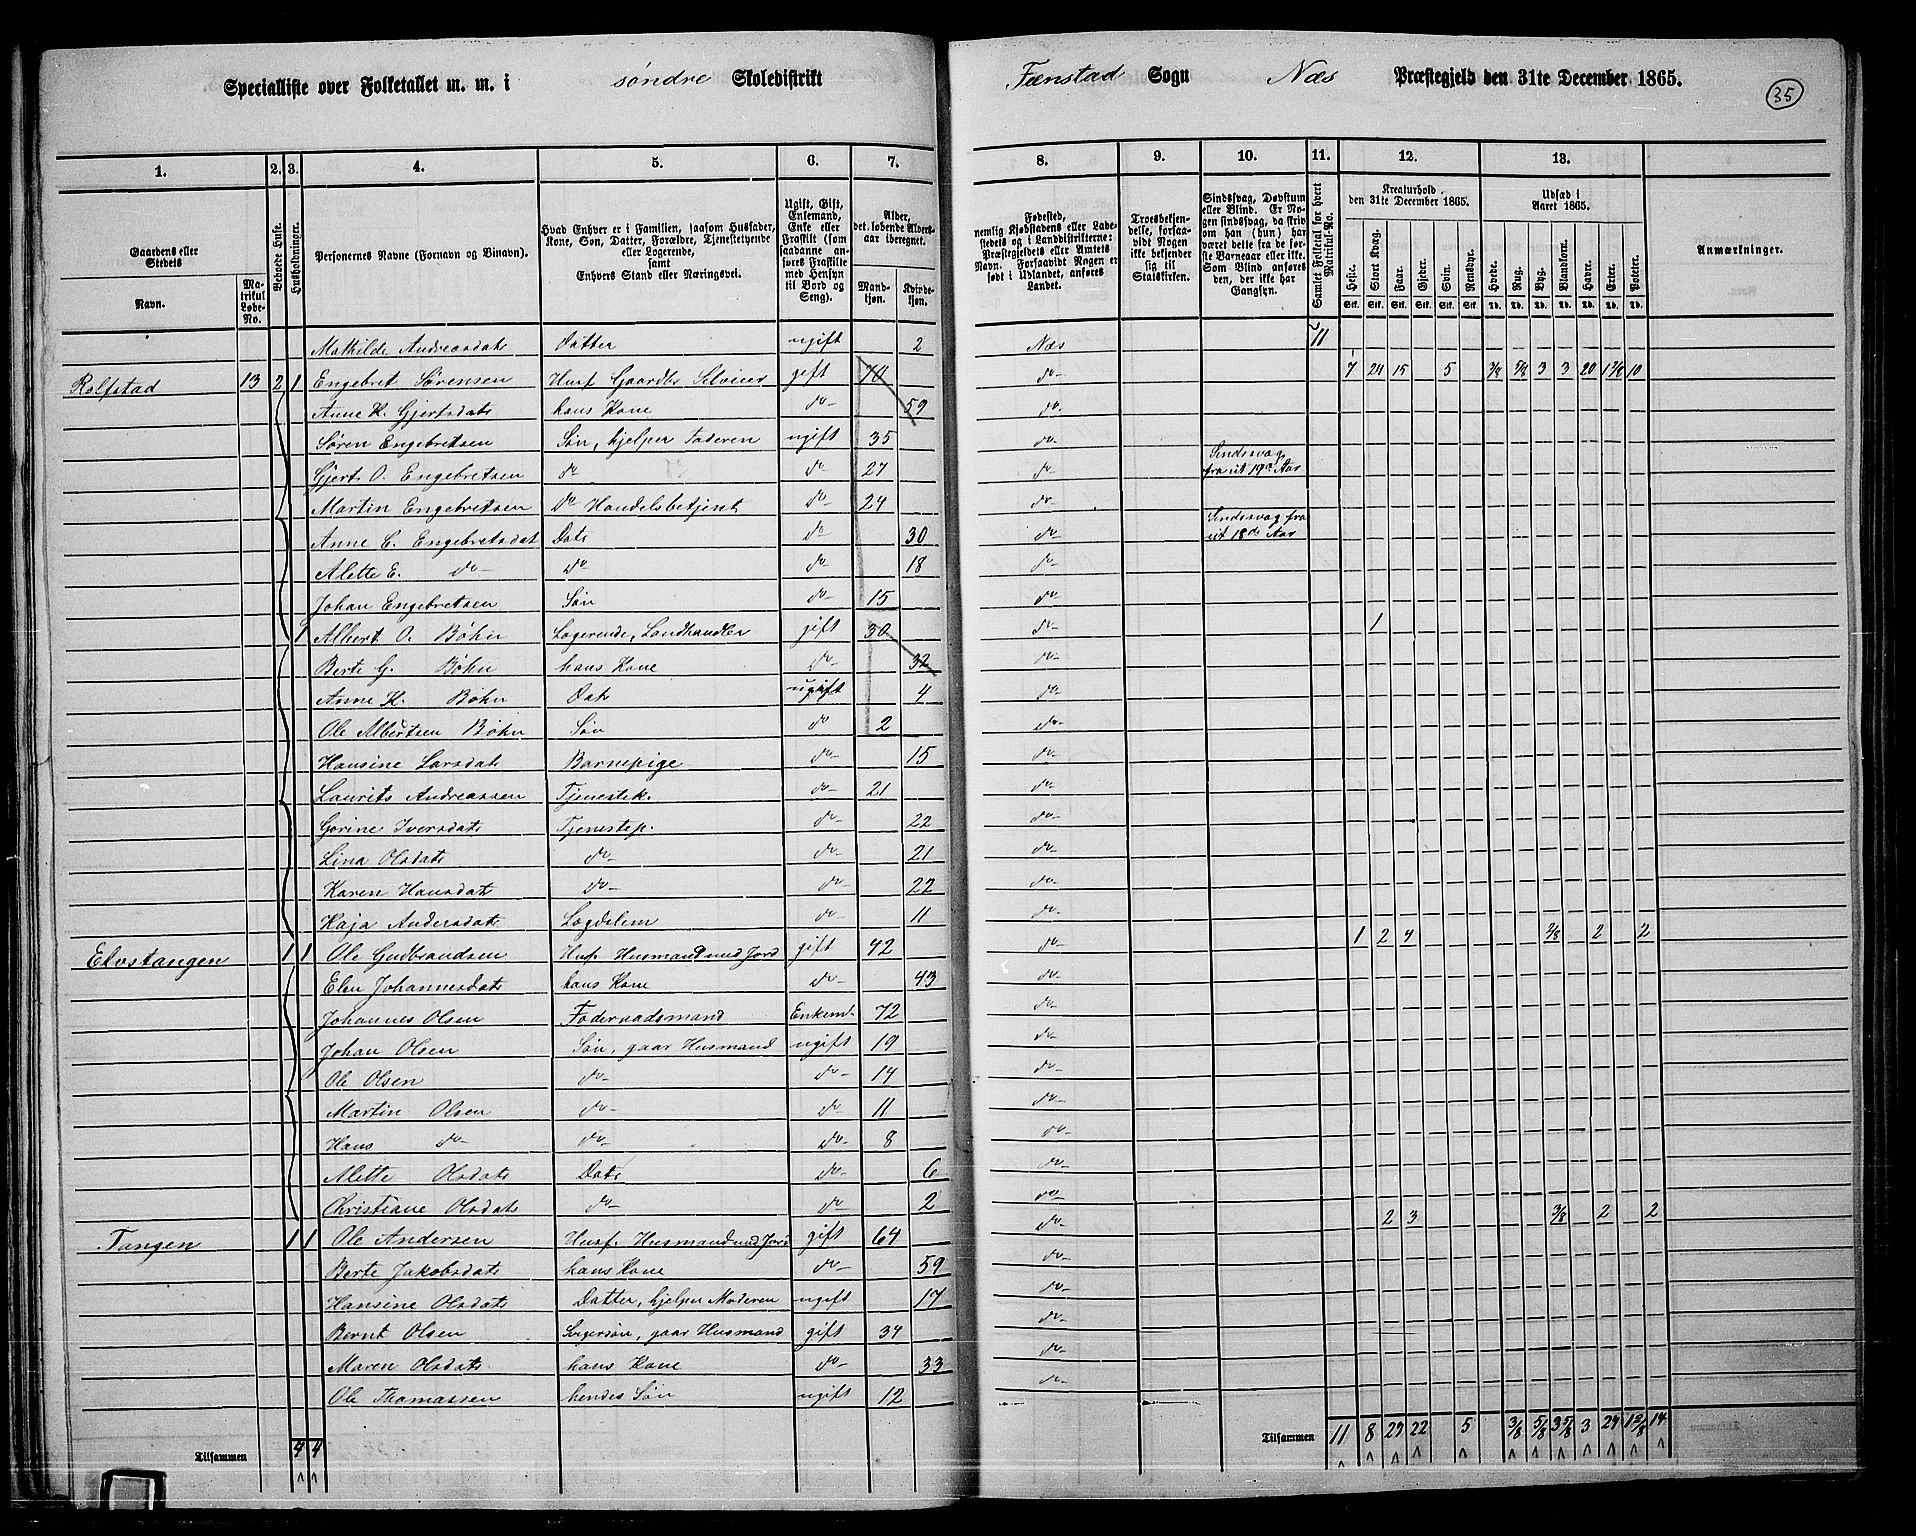 Specialliste over Folketallet m. m. i søndre Skoledistrikt Fænstad Sogn Næs Præstegjeld den 31te December 1865.
35
1. 2. 3. 4. 5. 6. 7. 8. 9. 10. 11. 12. 13.
Gaardens eller Stedets
Navn.
Matrikul Løbe-No.
Beboede Huse.
Husholdninger.
Personernes Navne (Fornavn og Binavn).
Hvad Enhver er i Familien, saasom Husfader, Kone, Søn, Datter, Forældre, Tjenestetyende eller Logerende, samt Enhvers Stand eller Næringsvei.
Ugift, Gift, Enkemand, Enke eller Fraskilt (som saadanne anføres Fraskilte med Hensyn til Bord og Seng).
Alder, det løbende Alders-aar iberegnet.
Mandkjøn. Kvindekjøn.
Fødested, nemlig Kjøbstadens eller Ladestedets og i Landdistrikterne: Præstegjeldets eller Amtets Navn. Forsaavidt Nogen er født i Udlandet, anføres Landet.
Troesbekjendelse, forsaavidt Nogen ikke bekjender sig til Statskirken.
Sindssvag, Døvstum eller Blind. Er Nogen sindssvag, da skrives om han (hun) har været dette fra de første Barneaar eller ikke. Som Blind anføres den, der ikke har Gangsyn.
Samlet Folketal for hvert Matrikul-No.
Kreaturhold den 31te December 1865.
Heste. Stort Kvæg. Faar. Gjeder. Svin. Rensdyr.
Udsæd i Aaret 1865.
Hvede. Rug. Byg. Blandkorn. Havre. Erter. Poteter.
Anmærkninger.
Mathilde Andreasdatr Datter ugift 2 Næs 11
Rolfstad 13 2 1 Engebret Sørensen Husf Gaardbr Selveier gift 70 do 7 24 15 5 3/8 5/8 3 3 20 1 2/8 10
Anne K. Gjertsdatr hans Kone do 59 do
Søren Engebretsen Søn, hjelper Faderen ugift 35 do
Gjert O. Engebretsen do do 27 do Sindssvag fra sit 19de Aar
Martin Engebretsen do Handelsbetjent do 24 do
Anne C. Engebretsdat Datr do 30 do Sindssvag fra sit 18de Aar
Alette E. do do do 18 do
Johan Engebretsen Søn do 15 do
1 Albert O. Bøhn Logerende, Landhandler gift 30 do 1
Berte G. Bøhn hans Kone do 32 do
Anne K. Bøhn Datr ugift 4 do
Ole Albertsen Bøhn Søn do 2 do
Hansine Larsdat Barnepige do 15 do
Laurits Andreassen Tjenestek. do 21 do
Gorine Iversdatr Tjenestep. do 22 do
Lina Olsdatr do do 21 do
Karen Hansdatr do do 22 do
Kaja Andersdatr Lægdslem do 11 do
Elvstangen 1 1 Ole Gudbrandsen Husf. Husmand med Jord gift 42 do 1 2 4 2/8 2 2
Elen Johannesdatr hans Kone do 43 do
Johannes Olsen Føderaadsmand Enkem. 72 do
Johan Olsen Søn, gaar Husmand ugift 19 do
Ole Olsen do do 14 do
Martin Olsen do do 11 do
Hans do do do 8 do
Alette Olsdatr Datr do 6 do
Christiane Olsdatr do do 2 do
Tangen 1 1 Ole Andersen Husf. Husmand med Jord gift 64 do 2 3 3/8 2 2
Berte Jakobsdatr hans Kone do 59 do
Hansine Olsdatr Datter, hjelper Moderen ugift 17 do
Bernt Olsen Svigersøn, gaar Husmand gift 34 do
Maren Olsdatr hans Kone do 33 do
Ole Thomassen hendes Søn ugift 12 do
Tilsammen 4 4 Tilsammen 11 8 29 22 5 3/8 5/8 3 5/8 3 24 1 2/8 14